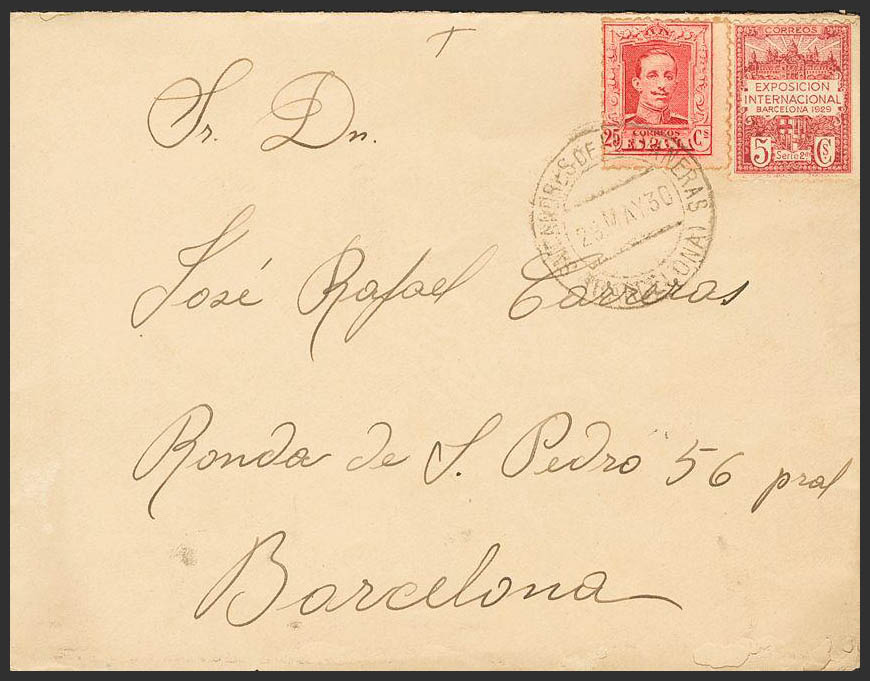 CORREOS
EXPOSICION
INTERNACIONAL
BARCELONA 1929
5 Serie 2ª Cs
CORREOS
25 ESPAÑA Cs
DE
NERAS
MAY 30
Sr. Dn.
José Rafael Carreras
Ronda de S. Pedro 56 pral
Barcelona